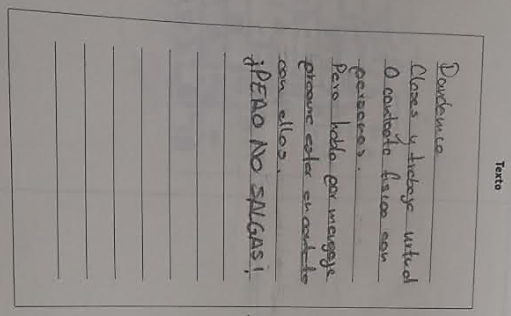 Texto
Pandemia
Clases y trabajo virtual
0 contacto fisico con
personas.
Pero habla por mensaje
procure estar en contacto
con ellos.
¡PERO NO SALGAS!